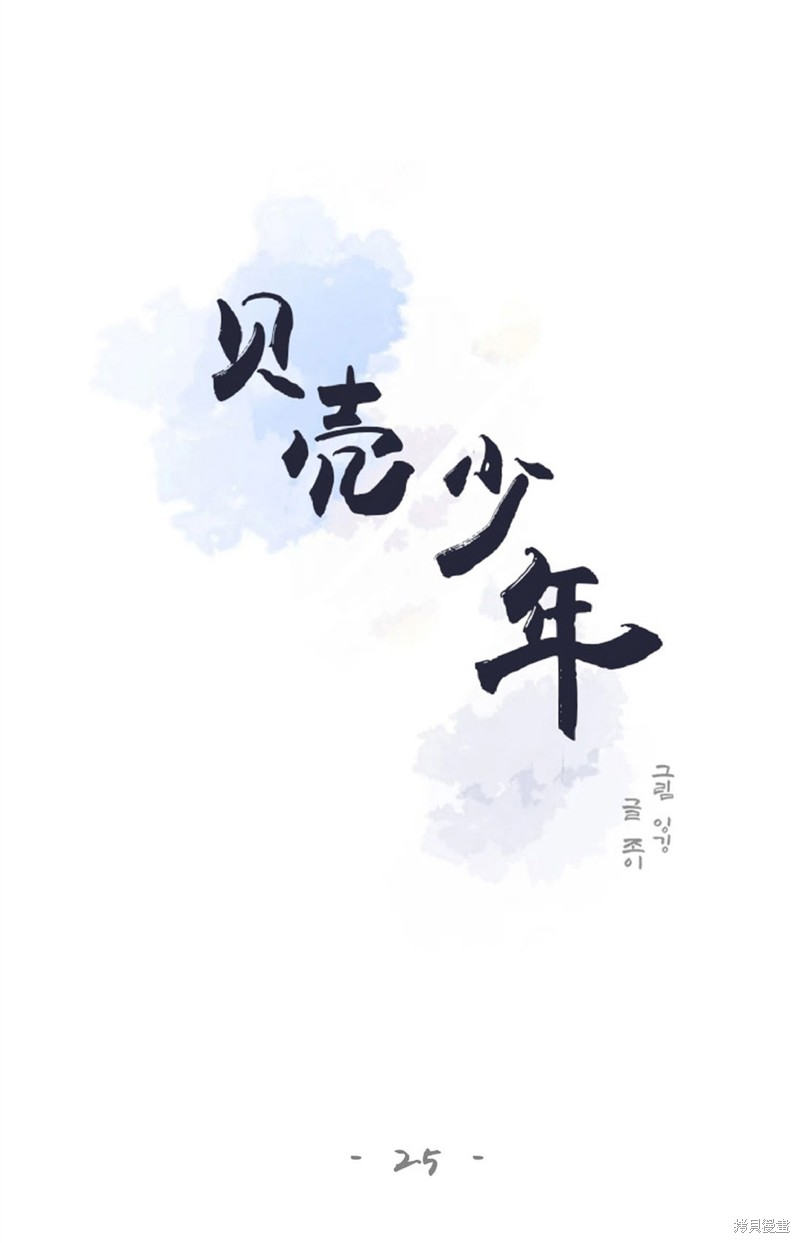 贝壳少年
그림 잉깅
글 죠이
- 25 -
拷貝漫畫